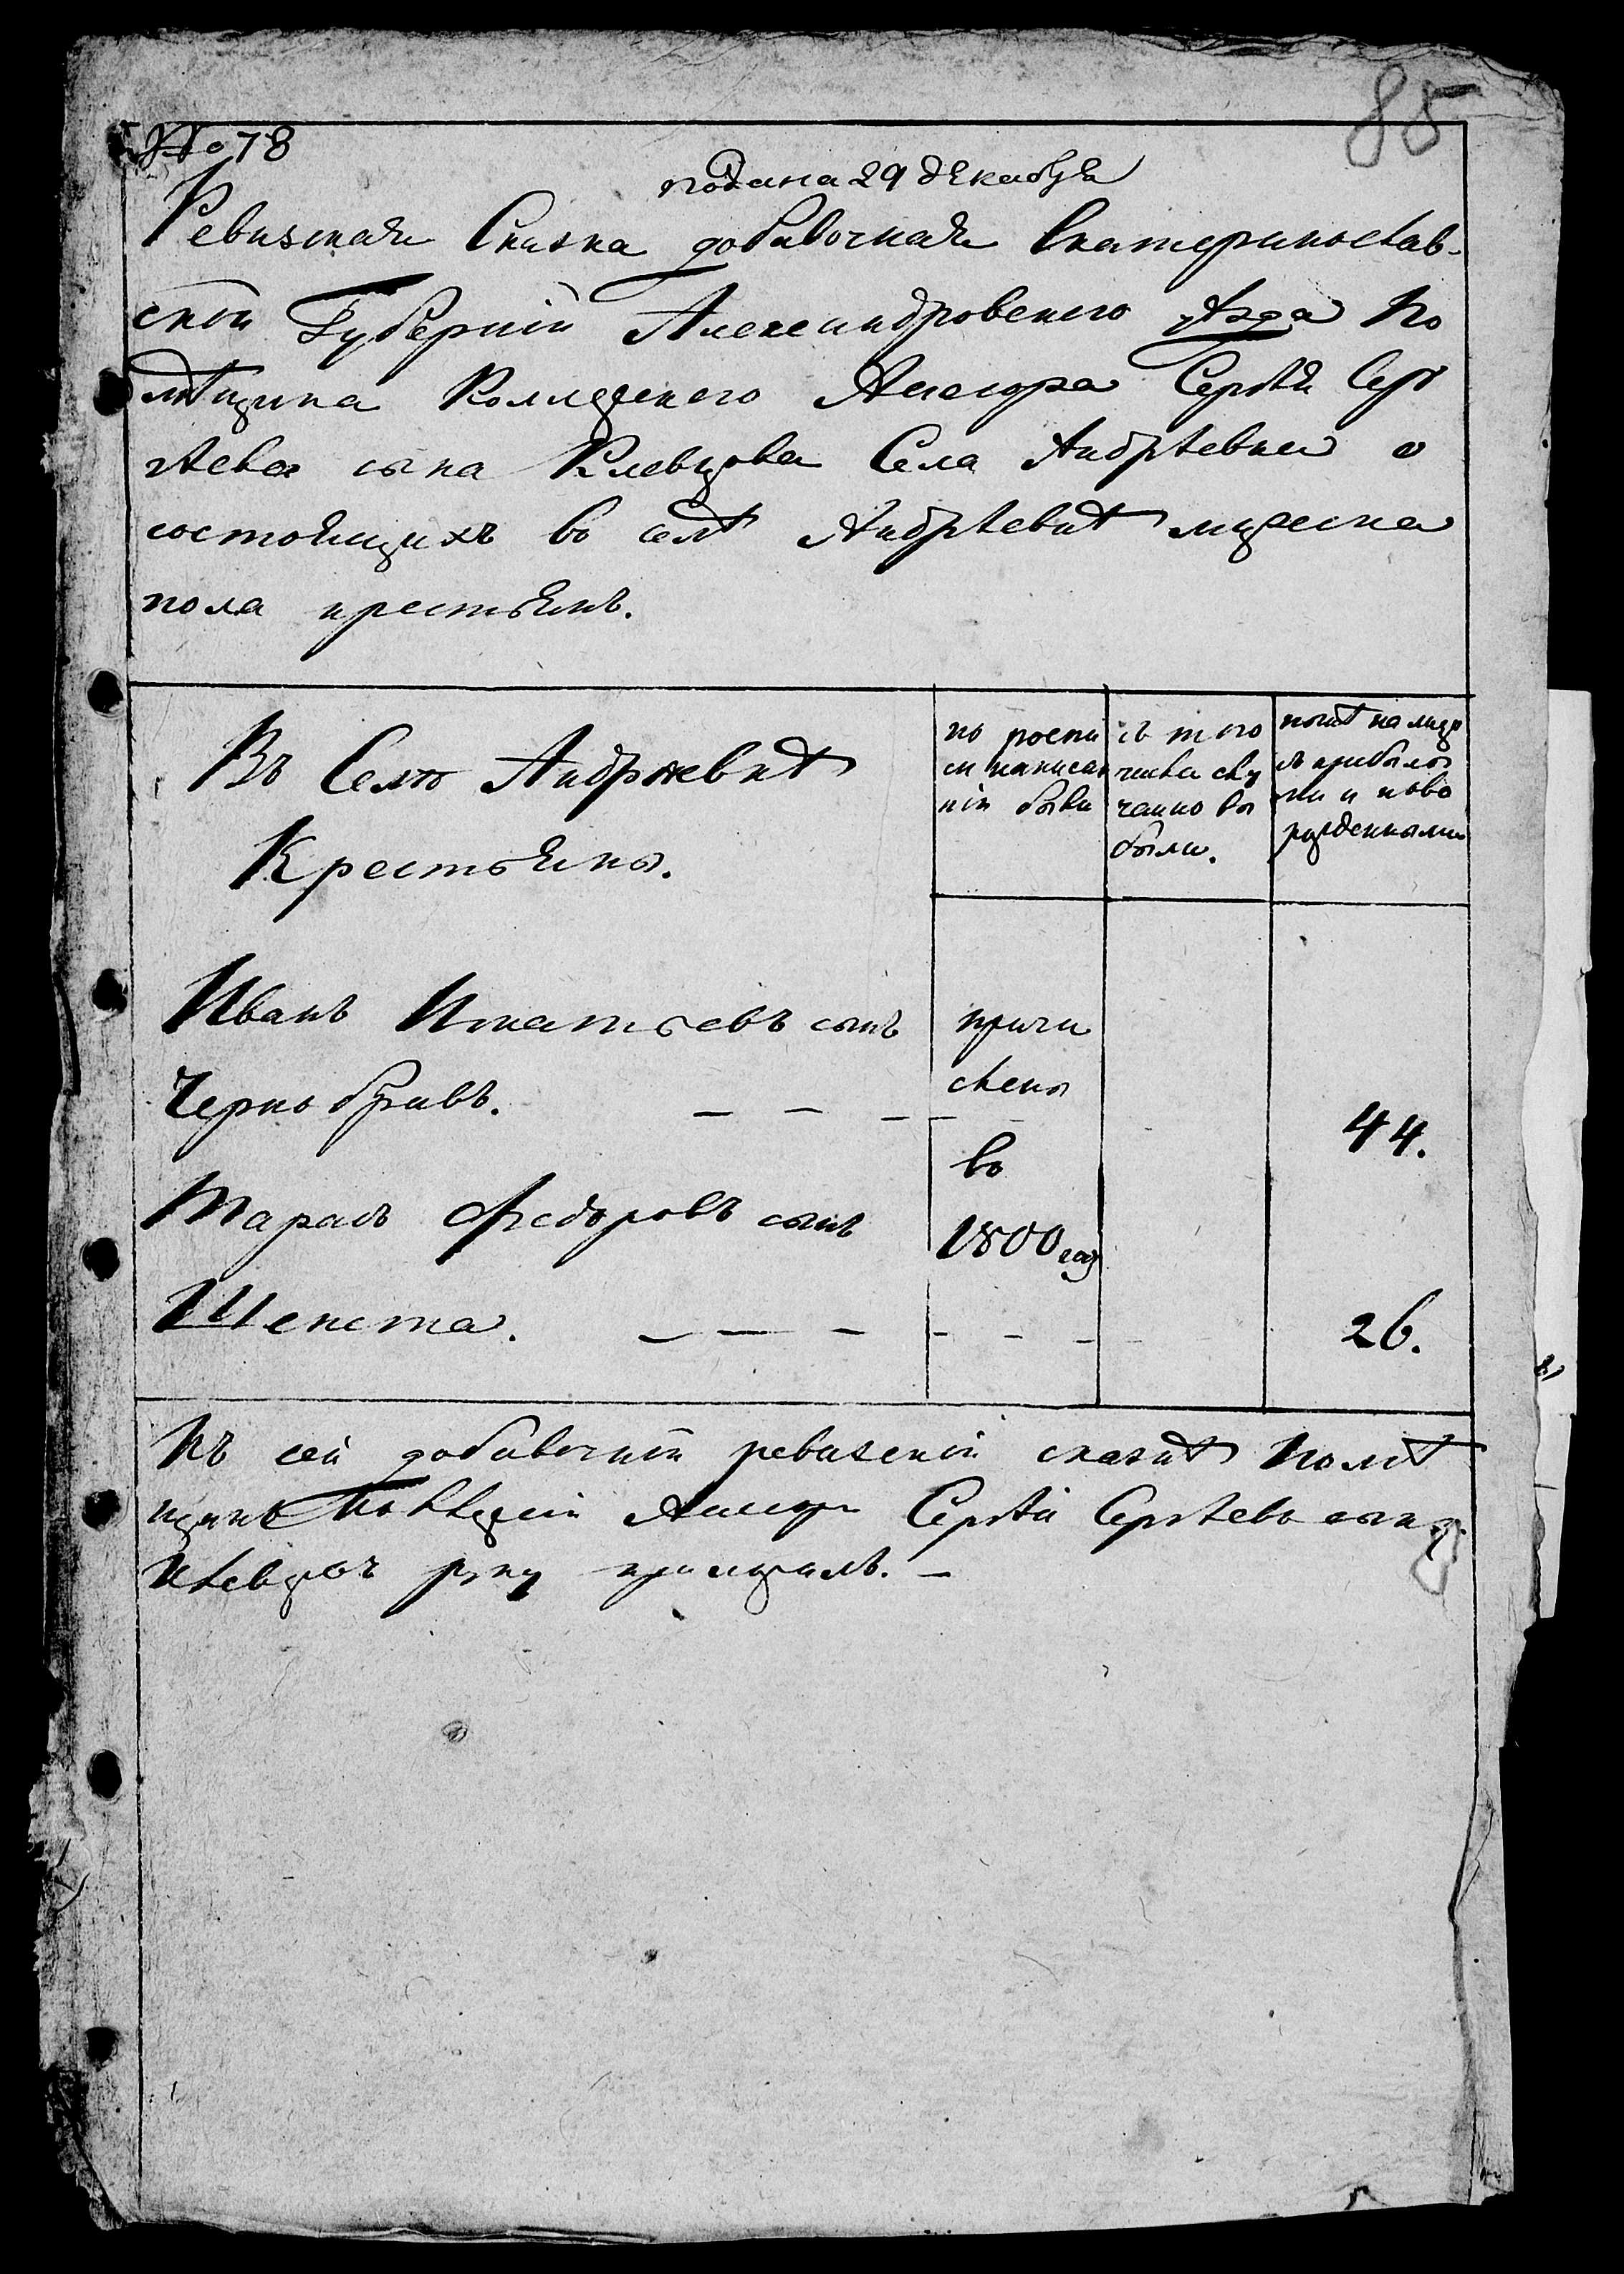 85
No 78
подана 29 декабря
Ревизская Сказка добавочная Екатеринослав-
ской Губернии Александровского уезда По
мѣщика Коллежского Асесора Сергѣя Сер
гѣева сына Клевцова Села Андрѣевки о
состоящихъ во селѣ Андрѣевкѣ мужеска
пола крестьянъ.
Въ Селѣ Андрѣевкѣ
Крестьяны.
по роспи
си написа
нiи были
съ того
числа слу
чайно вы
были.
нынѣ на лицо
съ прибылы
ми и ново
рожденными
Иванъ Игнатьевъ сынъ
Чернобривъ. — — —
причи
слены
во
1800 году
44.
Тарасъ Федоровъ сынъ
Шекета. — — — - - -
26.
Къ сей добавочной ревизской сказкѣ помѣ
щикъ Коллежский Асесоръ Сергѣй Сергѣевъ сынъ
Клевцовъ руку приложилъ. —